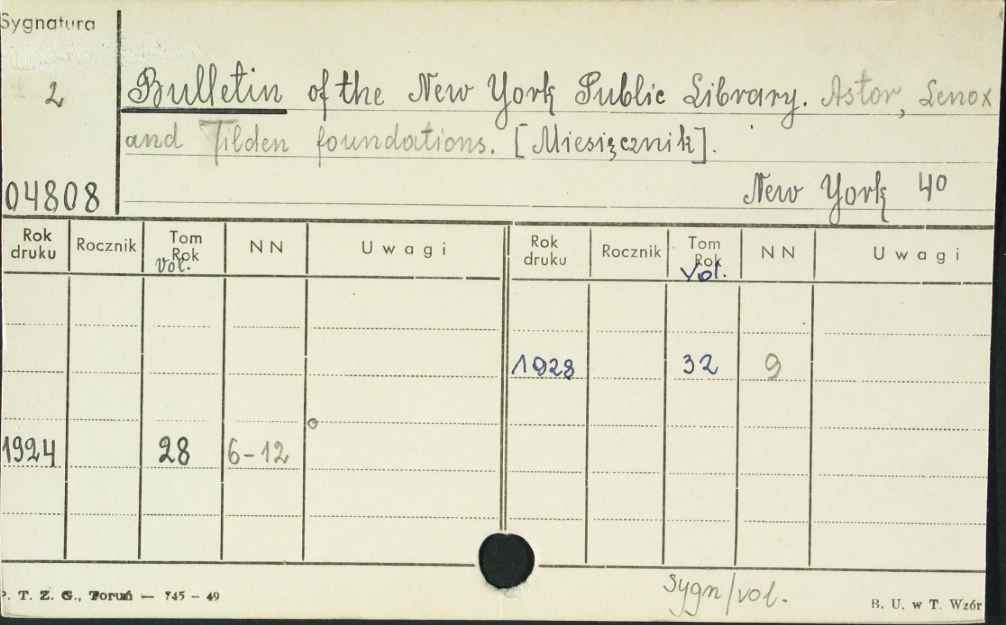 Sygnatura
2
04808
Bulletin of the New York Public Library. Astor, Lenox
and Tilden foundations. [Miesięcznik].
New York 4⁰
Rok druku Rocznik Tom Rok Vol. NN Uwagi Rok druku Rocznik Tom Rok Vol. NN Uwagi
1928 32 9
1924 28 6-12
P. T. Z. G., Toruń — 745 - 49
Sygn/vol.
B. U. w T. Wzór